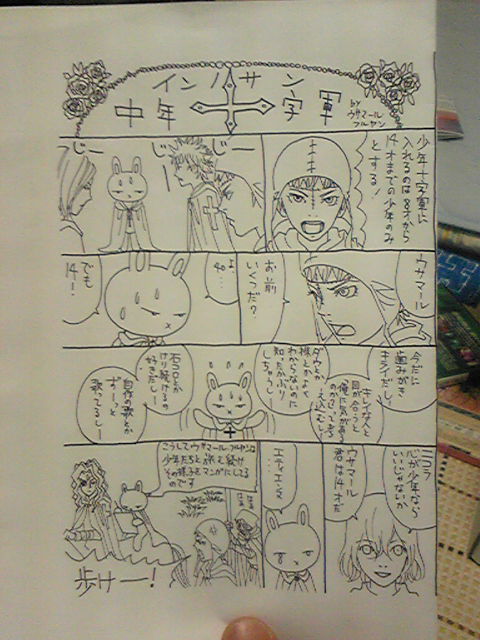 インノサン
中年十字軍
by
ウサマール
フルヤン
少年十字軍に
入れるのは8才から
14才までの少年のみ
とする!
じー
じー
じー
ウサマール
お前
いくつだ?
よ
40…
でも
14ー!
今だに
歯みがき
キライだし!
キレイな人と
目が合うと
ダウとか
株とかよく
わからないのに
知ったかぶり
しちゃうし
石コロとか
けり続けるの
好きだし!
自作の歌とか
ずーっと
歌ってるしー
ニコラ
心が少年なら
いいじゃないか
ウサマール
君は14才だ
エティエンヌ
…
こうしてウサマール・フルヤンは
少年たちと旅を続け
その様子をマンガにしてる
のです
歩けー!